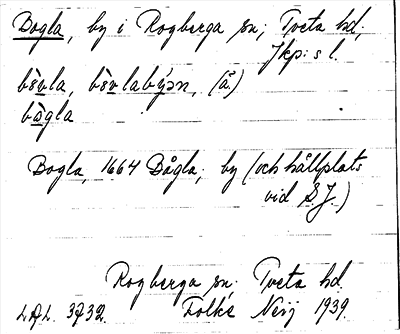 Bogla, by i Rogberga sn; Tveta hd;
Jkp:s l.
bèvla, bèvlabýən, (å.)
bàgla
Bogla, 1664 Bågla, by (och hållplats
vid S.J.)
Rogberga sn; Tveta hd.
L.A.L. 3732. Folke Neij 1939.